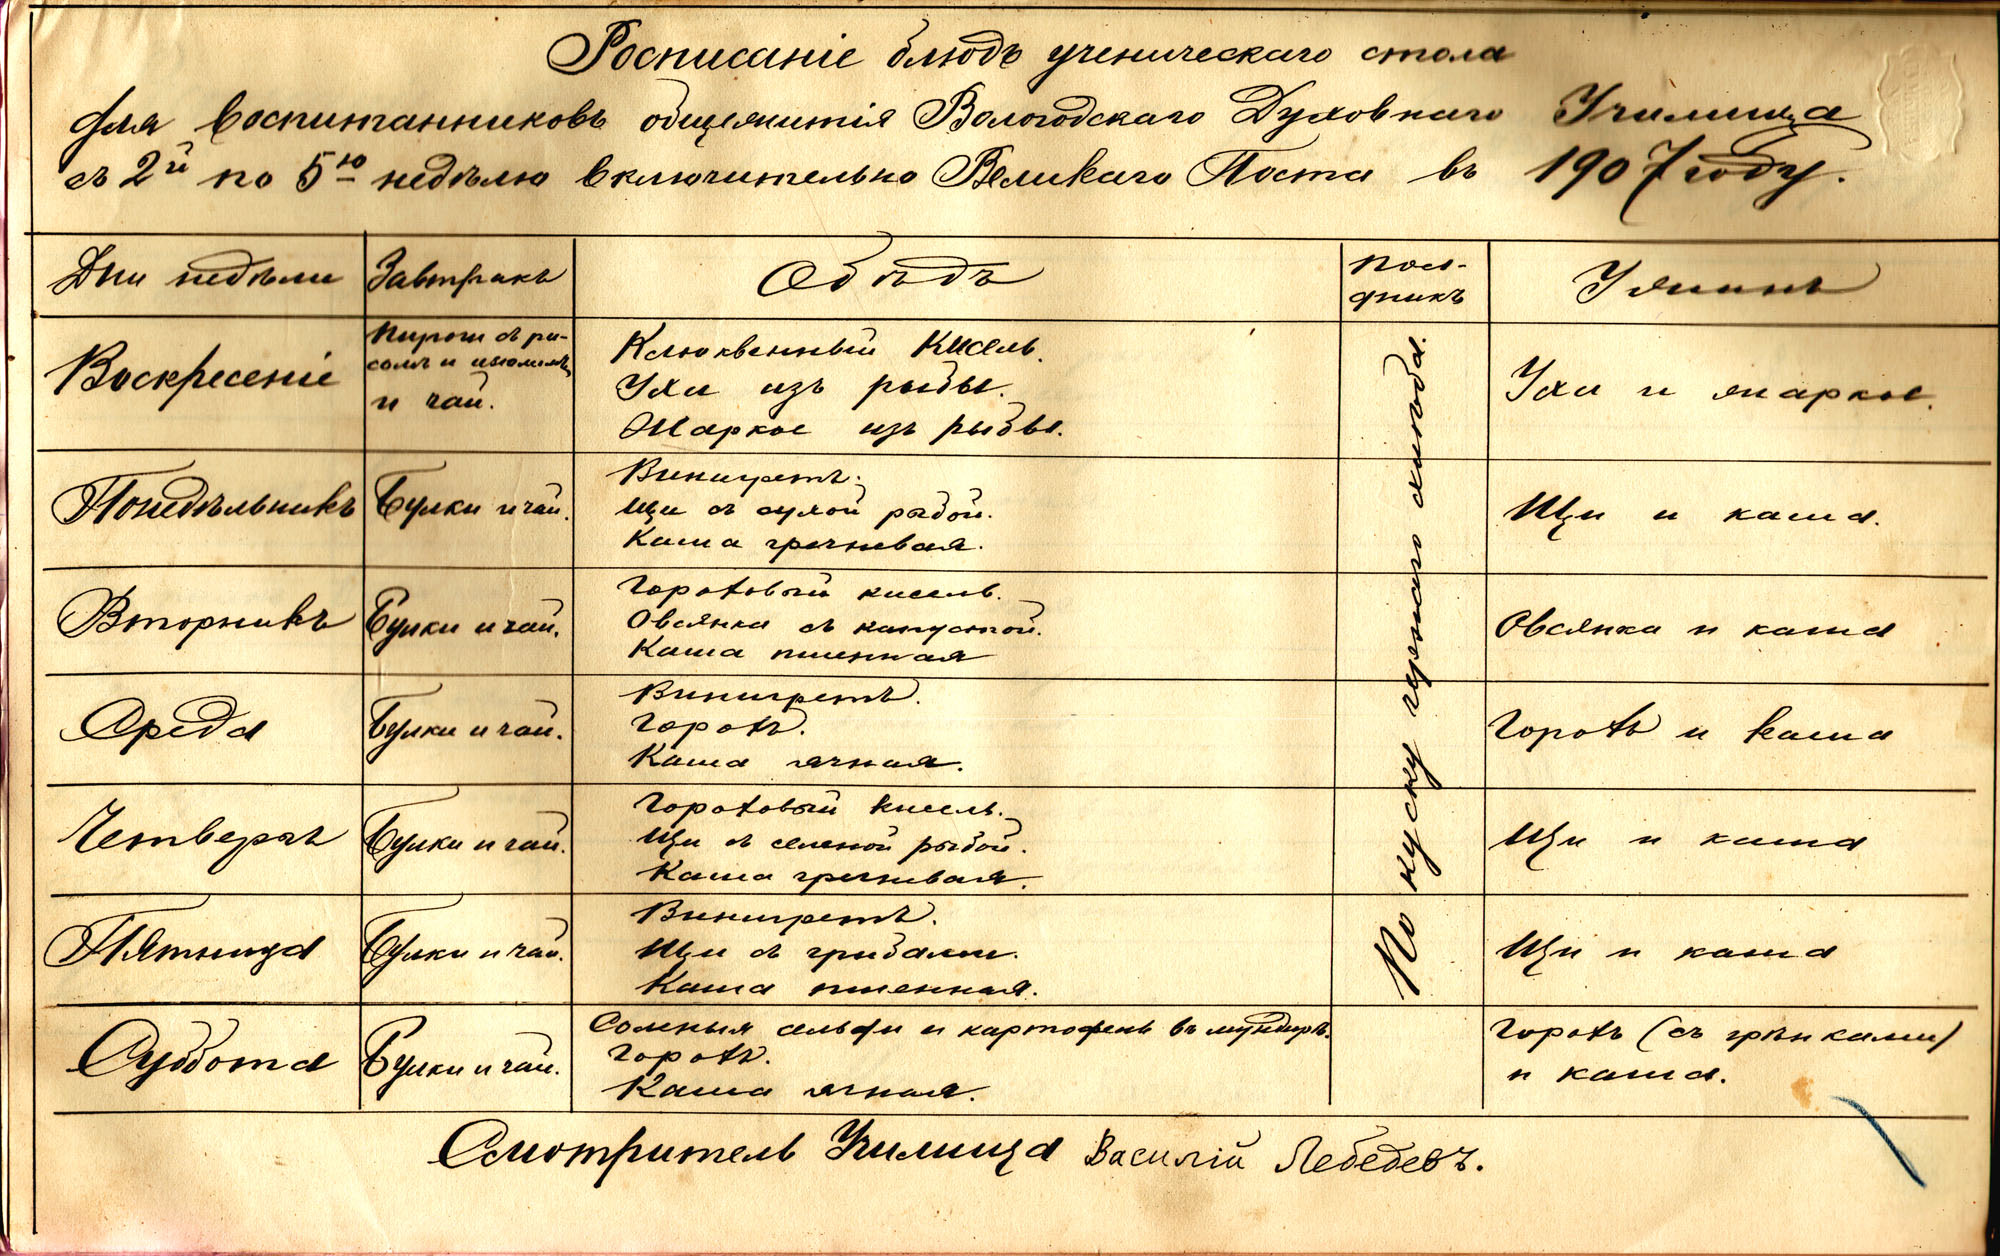 Росписаніе блюдъ ученическаго стола
для воспитанниковъ общежитія Вологодскаго Духовнаго Училища
съ 2й по 5ю недѣлю включительно Великаго Поста въ 1907 году.
Дни недѣли Завтракъ Обѣдъ Пол-
дникъ Ужинъ
Воскресеніе
Пироги съ ри-
сомъ и изюмомъ
и чай.
Клюквенный Кисель.
Уха изъ рыбы.
Жаркое изъ рыбы.
Уха и жаркое.
Понедѣльникъ Булки и чай.
Винигретъ.
Щи съ сухой рыбой.
Каша гречневая.
Щи и каша.
Вторникъ Булки и чай.
Гороховый кисель.
Овсянка съ капустой.
Каша пшенная
Овсянка и каша
Среда Булки и чай.
Винигретъ.
Горохъ.
Каша ячная.
Горохъ и каша
Четвергъ Булки и чай.
Гороховый кисель.
Щи съ соленой рыбой.
Каша гречневая.
Щи и каша
Пятница Булки и чай.
Винигретъ.
Щи съ грибами.
Каша пшенная.
Щи и каша
Суббота Булки и чай.
Соленыя сельди и картофель въ мундирѣ.
Горохъ.
Каша ячная.
Горохъ (съ грѣнками)
и каша.
По куску чернаго хлѣба.
Смотритель Училища Василій Лебедевъ.